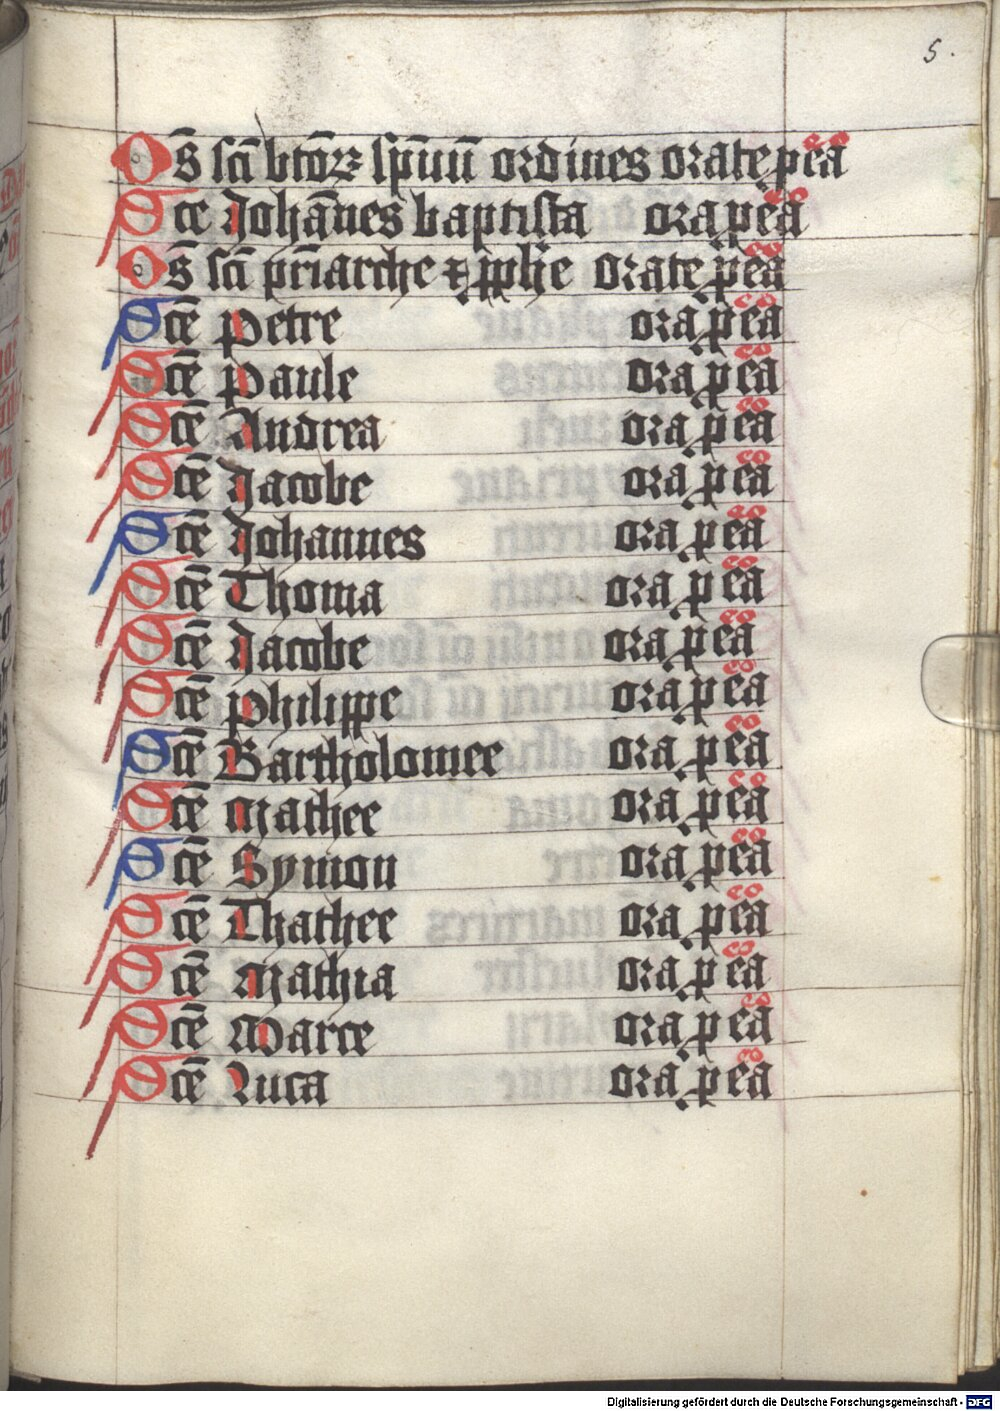 5.
Os̄ sc̄i bt̄orꝝ sp̄uū ordines orate p eā eo
Sce Johān̄es baptista ora p eā eo
Os̄ sc̄i pr̄iarche ⁊ ꝓph̄e orate p eā eo
Sc̄e Petre ora p eā eo
Sc̄e Paule ora p eā eo
Sc̄e Andrea ora p eā eo
Sc̄e Jacobe ora p eā eo
Sc̄e Johannes ora p eā eo
Sc̄e Thoma ora p eā eo
Sc̄e Jacobe ora p eā eo
Sc̄e philippe ora p eā eo
Sc̄e Bartholomee ora p eā eo
Sc̄e Mathee ora p eā eo
Sc̄e Symon ora p eā eo
Sc̄e Thathee ora p eā eo
Sc̄e Mathia ora p eā eo
Sc̄e Marce ora p eā eo
Sc̄e Luca ora p eā eo
Digitalisierung gefördert durch die Deutsche Forschungsgemeinschaft - DFG